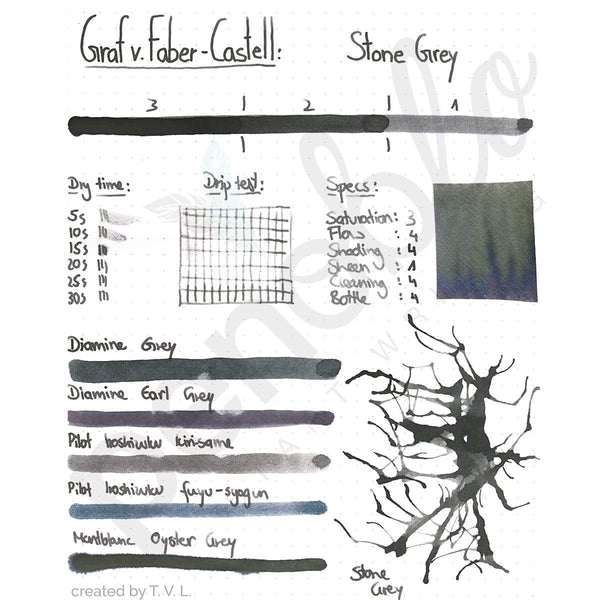 Graf v. Faber-Castell: Stone Grey
3 2 1
Dry time: Drip test: Specs:
5s
10s
15s
20s
25s
30s
Saturation: 3
Flow : 4
Shading : 4
Sheen : 1
Cleaning : 4
Bottle : 4
Diamine Grey
Diamine Earl Grey
Pilot Iroshizuku kiri-same
Pilot Iroshizuku fuyu-syogun
Montblanc Oyster Grey
Stone
Grey
created by T. V. L.